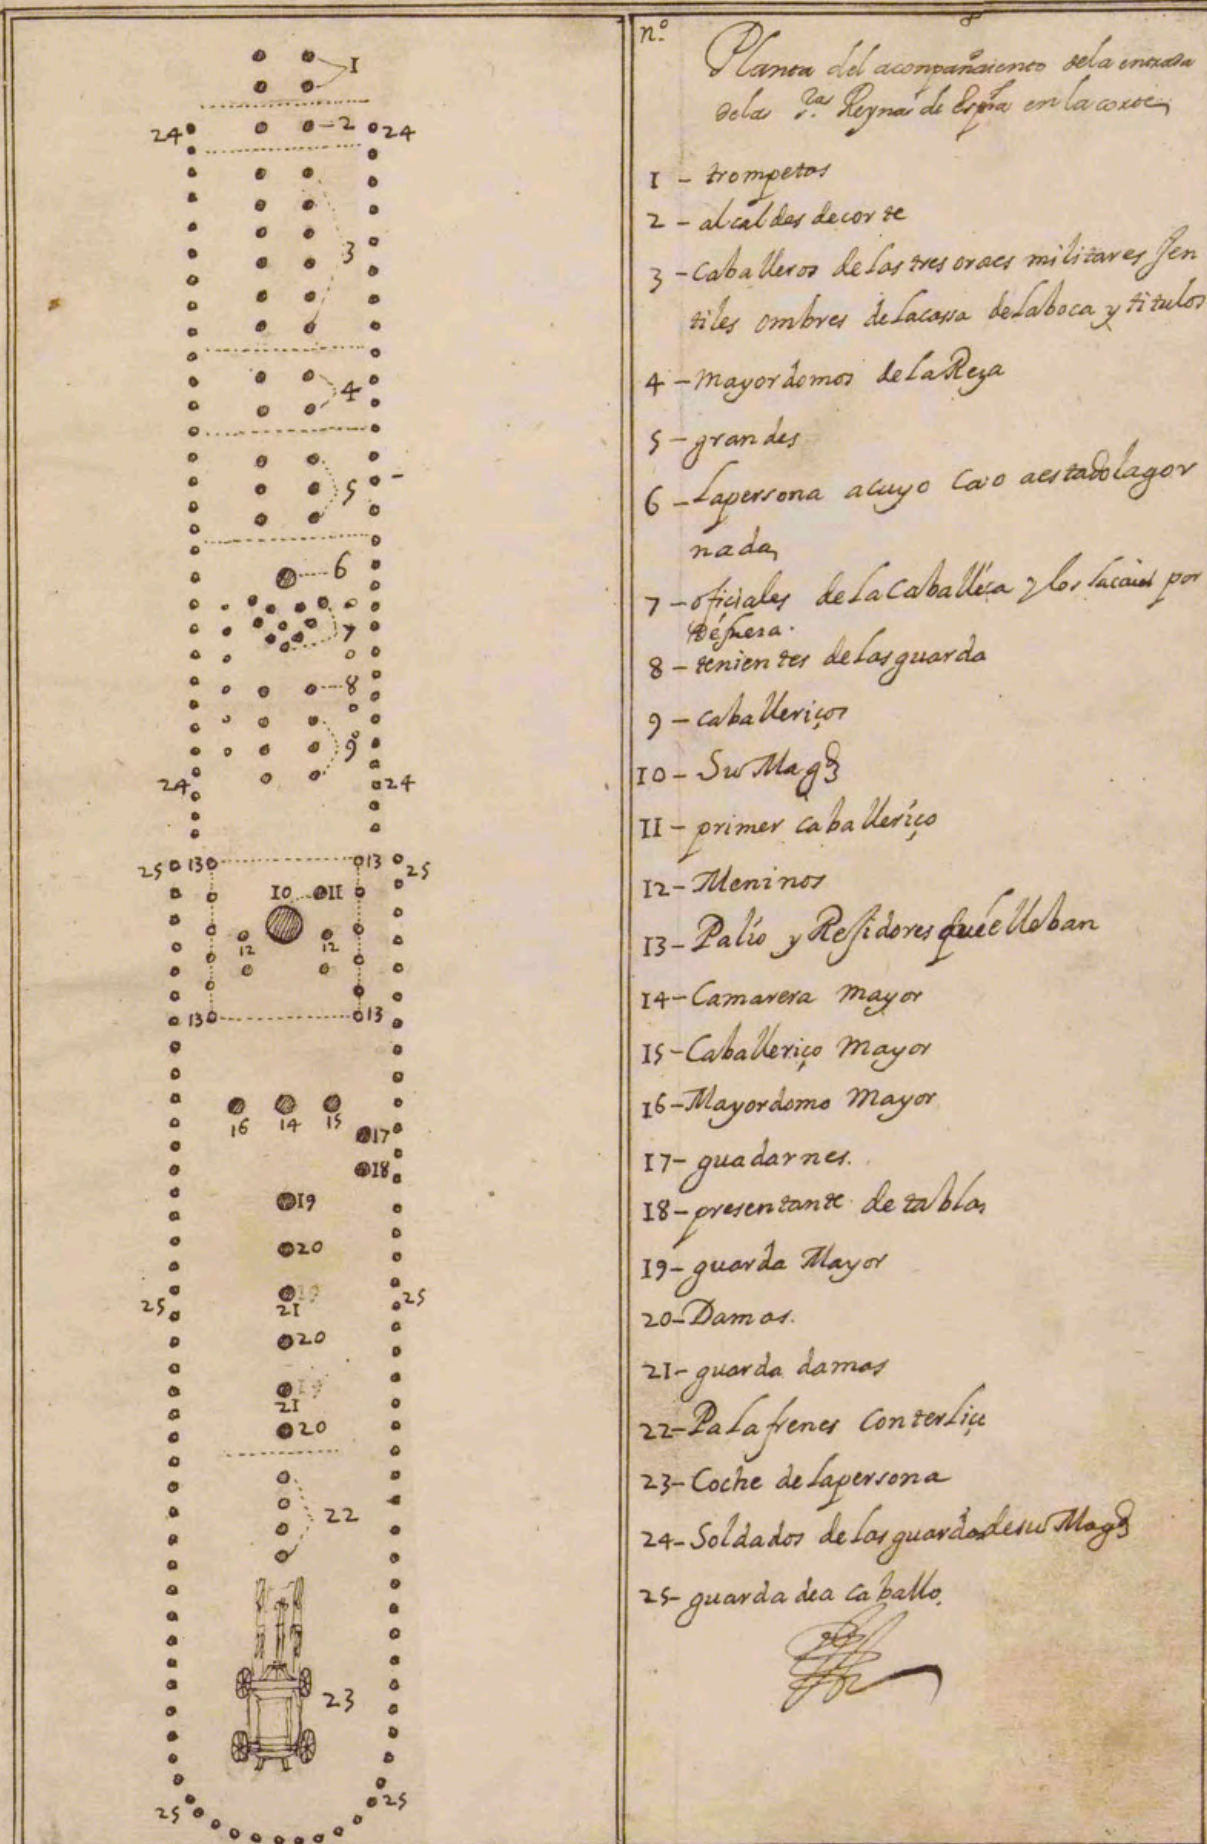 1
2
24 24
3
4
5
6
7
8
9
24 24
25 13 13 25
10 11
12 12
13 13
16 14 15
17
18
19
20
25 21 25
20
21
20
22
23
25 25
n.º 8
Planta del aconpañaiento dela entrada
dela s.ras Reynas de Espña en la corte
1 - trompetas
2 - alcaldes decorte
3 - Caballeros delas tres ordes militares Jen
tiles ombres delacassa delaboca y titulos
4 - Mayordomos dela Reya
5 - grandes
6 - Lapersona acuyo Caro aestadolagor
nada
7 - oficiales dela Caballiça y los lacaies por
defuera.
8 - tenientes delas guarda
9 - caballeriços
10 - Su Magd
11 - primer caballeriço
12 - Meninos
13 - Palio y Residores que lleban
14 - Camarera mayor
15 - Caballeriço Mayor
16 - Mayordomo Mayor
17 - guadarnes.
18 - presentante de tablas
19 - guarda Mayor
20 - Damas.
21 - guarda damas
22 - Palafrenes Conterliçe
23 - Coche de Lapersona
24 - Soldados de las guardas desu Magd
25 - guarda dea caballo.